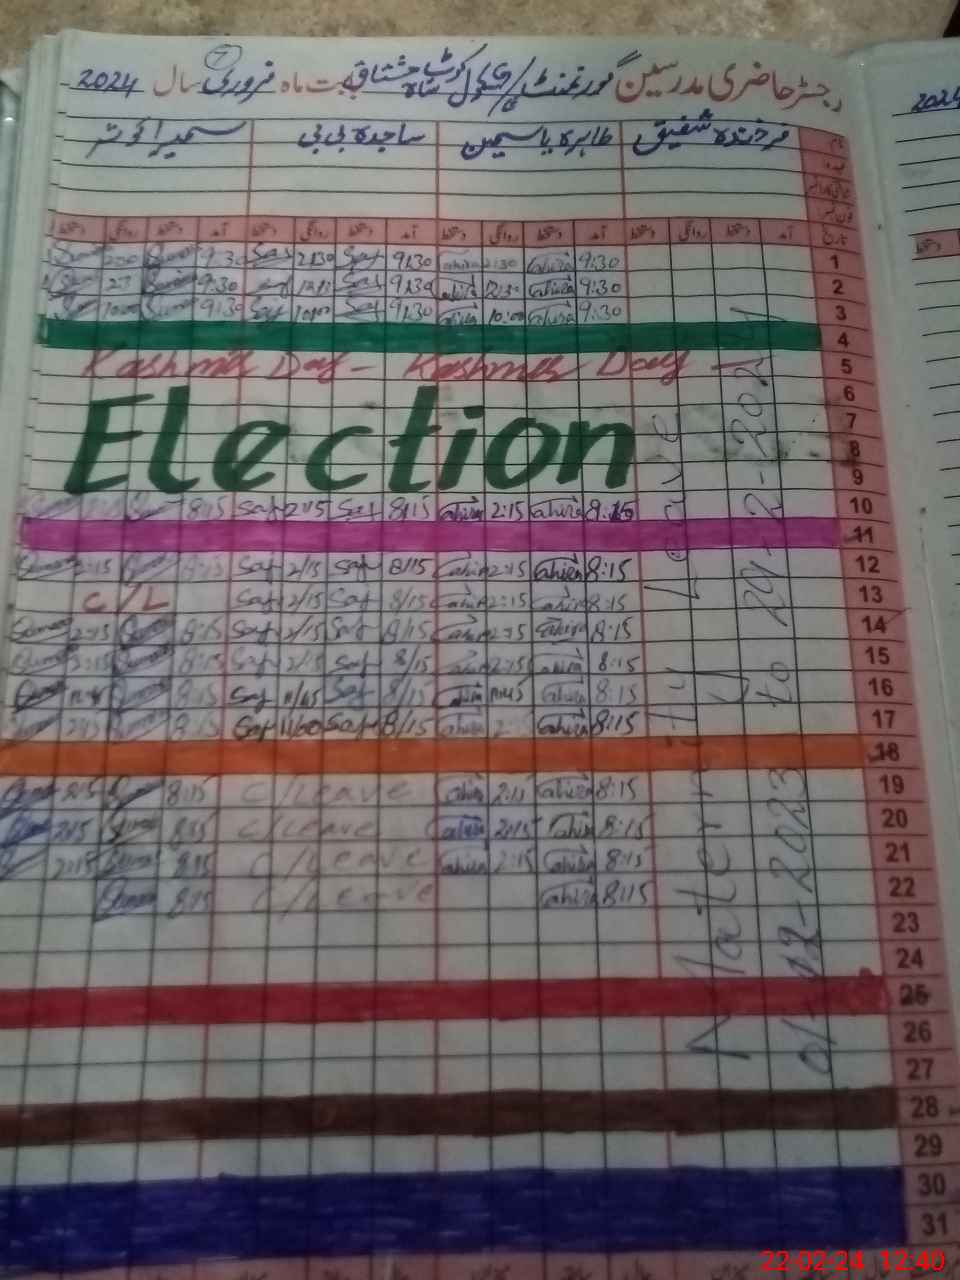 رجسٹر حاضری مدرسین گورنمنٹ سکول کوٹ شاہ مشتاق بابت ماہ فروری سال 2024
2024
نام فرخندہ شفیق طاہرہ یاسمین ساجدہ بی بی سمیرا کوثر
عہدہ
تاریخ آمد دستخط روانگی دستخط آمد دستخط روانگی دستخط آمد دستخط روانگی دستخط آمد دستخط روانگی دستخط
9:30 2:30 Saj 9:30 Tahira 2:30 Tahira 9:30 1
9:30 Saj 9:30 Tahira 12:30 Tahira 9:30 2
10:00 9:30 Saj 10:00 Saj 9:30 Tahira 10:00 Tahira 9:30 3
4
Kashmir Day - Kashmir Day - 5
6
Election 7
8
9
8:15 Saj 2:15 Saj 8:15 Tahira 2:15 Tahira 8:15 10
11
2:15 8:15 Saj 2/15 Saj 8/15 Tahira 2:15 Tahira 8:15 12
C/L Saj 2/15 Saj 8/15 Tahira 2:15 Tahira 8:15 13
2:15 8:15 Saj 2/15 Saj 8/15 Tahira 2:15 Tahira 8:15 14
2:15 8:15 Saj 2/15 Saj 8/15 Tahira 2:15 Tahira 8:15 15
8:15 Saj 11/45 Saj 8/15 Tahira 11:45 Tahira 8:15 16
2:15 8:15 Saj Saj 8/15 Tahira Tahira 8:15 17
18
2:15 8:15 C/Leave Tahira 2:15 Tahira 8:15 19
2:15 8:15 C/Leave Tahira 2:15 Tahira 8:15 20
2:15 8:15 C/Leave Tahira 2:15 Tahira 8:15 21
8:15 C/Leave Tahira 8:15 22
23
24
25
26
27
28
29
30
31
Maternity Leave
01-12-2023 to 29-2-2024
22-02-24 12:40